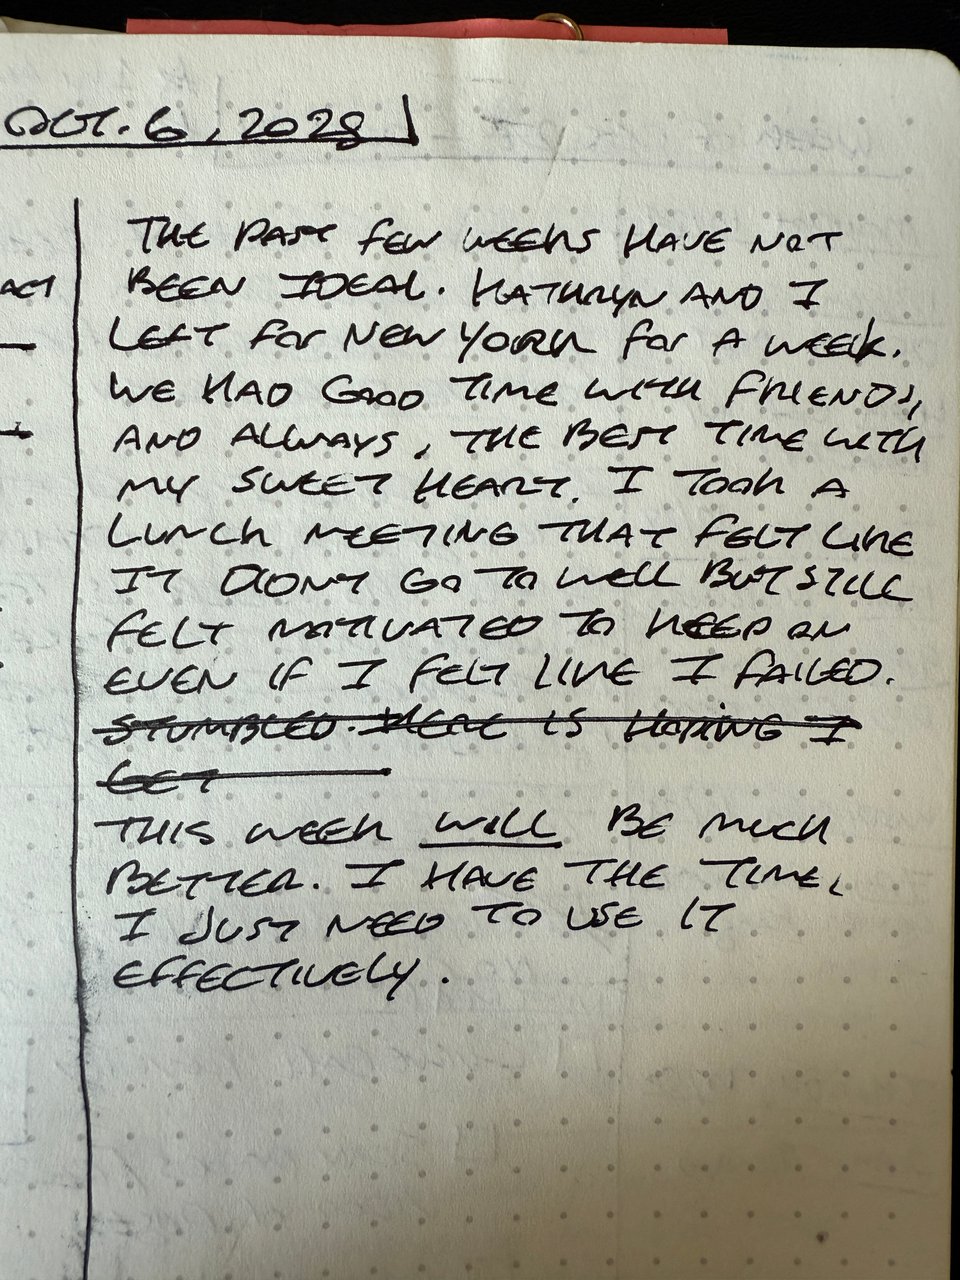 OCT. 6, 2028
ACT
THE PAST FEW WEEKS HAVE NOT
BEEN IDEAL. KATHRYN AND I
LEFT FOR NEW YORK FOR A WEEK.
WE HAD GOOD TIME WITH FRIENDS,
AND ALWAYS, THE BEST TIME WITH
MY SWEET HEART. I TOOK A
LUNCH MEETING THAT FELT LIKE
IT DIDN'T GO TO WELL BUT STILL
FELT MOTIVATED TO KEEP ON
EVEN IF I FELT LIKE I FAILED.
STUMBLED. HERE IS HOPING I
GET
THIS WEEK WILL BE MUCH
BETTER. I HAVE THE TIME,
I JUST NEED TO USE IT
EFFECTIVELY.